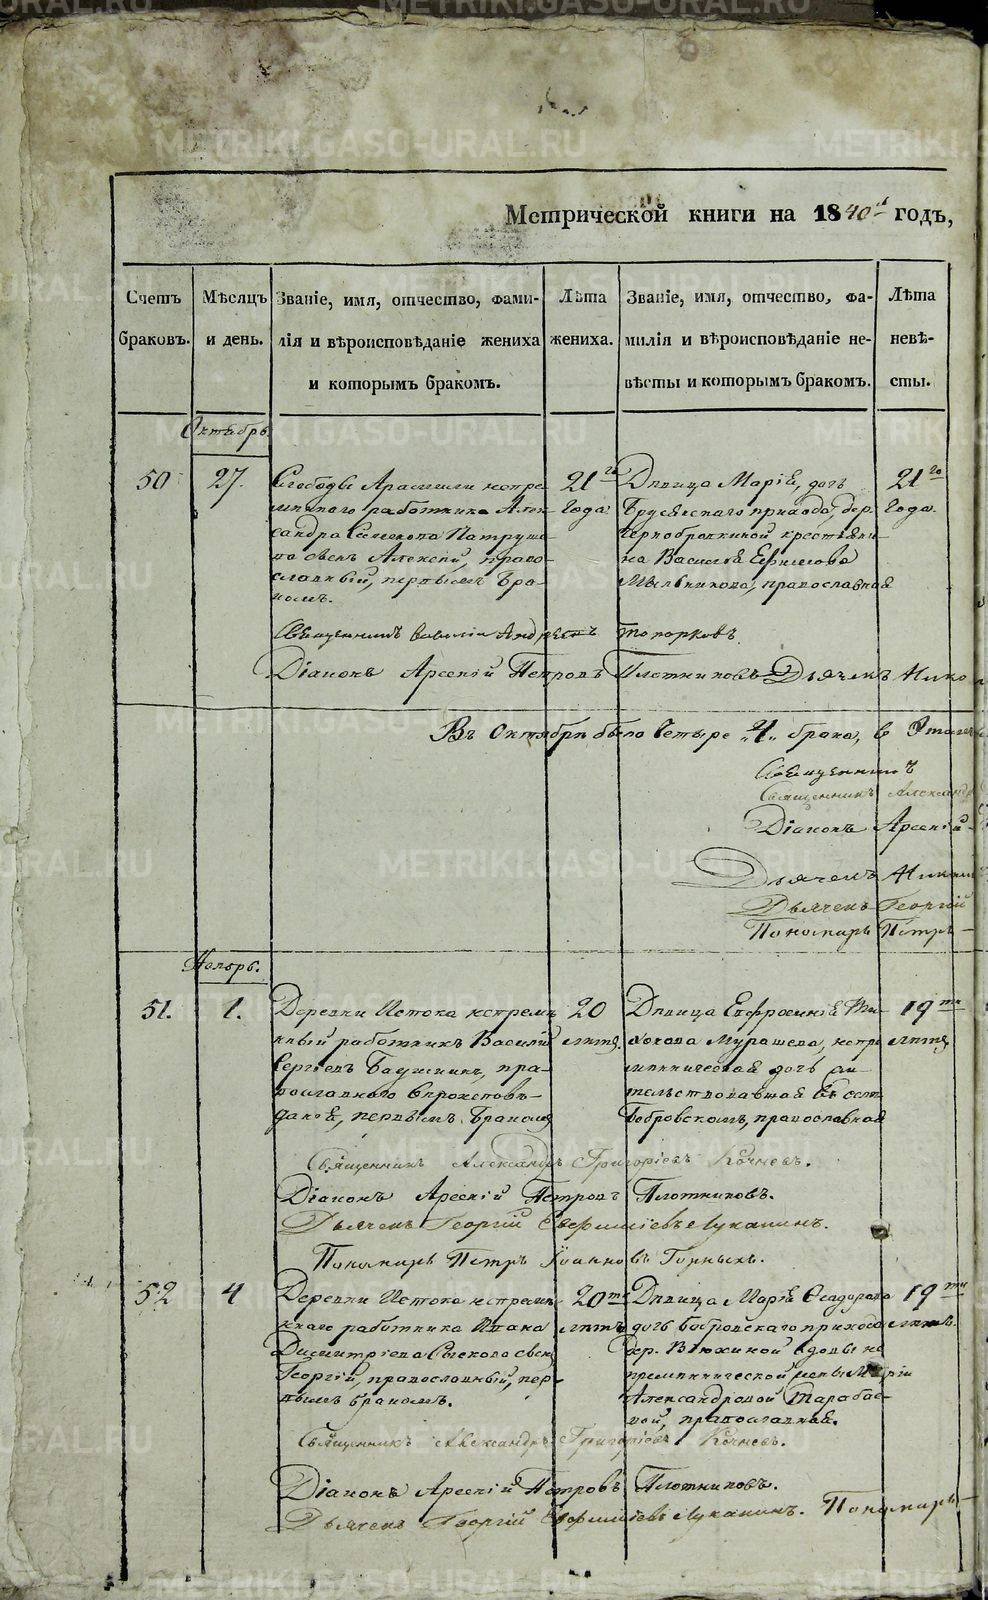 METRIKI.GASO-URAL.RU
Метрической книги на 1840й годъ,
Счетъ браковъ.
Мѣсяцъ и день.
Званіе, имя, отчество, фами-
лія и вѣроисповѣданіе жениха
и которымъ бракомъ.
Лѣта жениха.
Званіе, имя, отчество, фа-
милія и вѣроисповѣданіе не-
вѣсты и которымъ бракомъ.
Лѣта невѣ-
сты.
Октябрь
50
27.
Слободы Арамили непре-
мѣннаго работника Алек-
сандра Патруше-
ва сынъ Алексѣй, право-
славный, первымъ бра-
комъ.
21го года
Дѣвица Марія, дочь
Брусянскаго прихода, дер.
Чернобровкиной крестьяни-
на Василья Ефимова
Мѣльникова, православная
21го года.
Священникъ Андреевъ Топорковъ
Діаконъ Арсеній Петровъ Плотниковъ Дьячекъ Нико
Въ Октябрѣ было четыре „4„ брака, в
Священникъ
Священникъ Александръ
Діаконъ Арсеній
Дьячекъ
Дьячекъ Георгій
Пономарь Петръ
Ноябрь.
51.
1.
Деревни Истока непремѣ-
нный работникъ Василій
Сергѣевъ, пра-
вославнаго вѣроисповѣ-
данія, первымъ бракомъ
20 лѣтъ.
Дѣвица Евфросинія Ти-
хонова Мурашева, непре-
мѣнническая дочь жи-
тельствовавшая въ селѣ
Бобровскомъ, православная
19ти лѣтъ
Священникъ Александръ Григоріевъ Кочневъ.
Діаконъ Арсеній Петровъ Плотниковъ.
Дьячекъ Георгій Евфиміевъ Луканинъ.
Пономарь Петръ Іоанновъ Горныхъ.
52
4
Деревни Истока непремѣ-
ннаго работника Ивана
Димитріева сынъ
Георгій, православный, пер-
вымъ бракомъ.
20ть лѣтъ
Дѣвица Марія Феодорова
дочь Бобровскаго прихода
дер. Вьюхиной вдовы не-
премѣннической жены Маріи
Александровой Тарабае-
вой, православная.
19ти лѣтъ.
Священникъ Александръ Григоріевъ Кочневъ.
Діаконъ Арсеній Петровъ Плотниковъ.
Дьячекъ Георгій Евфиміевъ Луканинъ. Пономарь